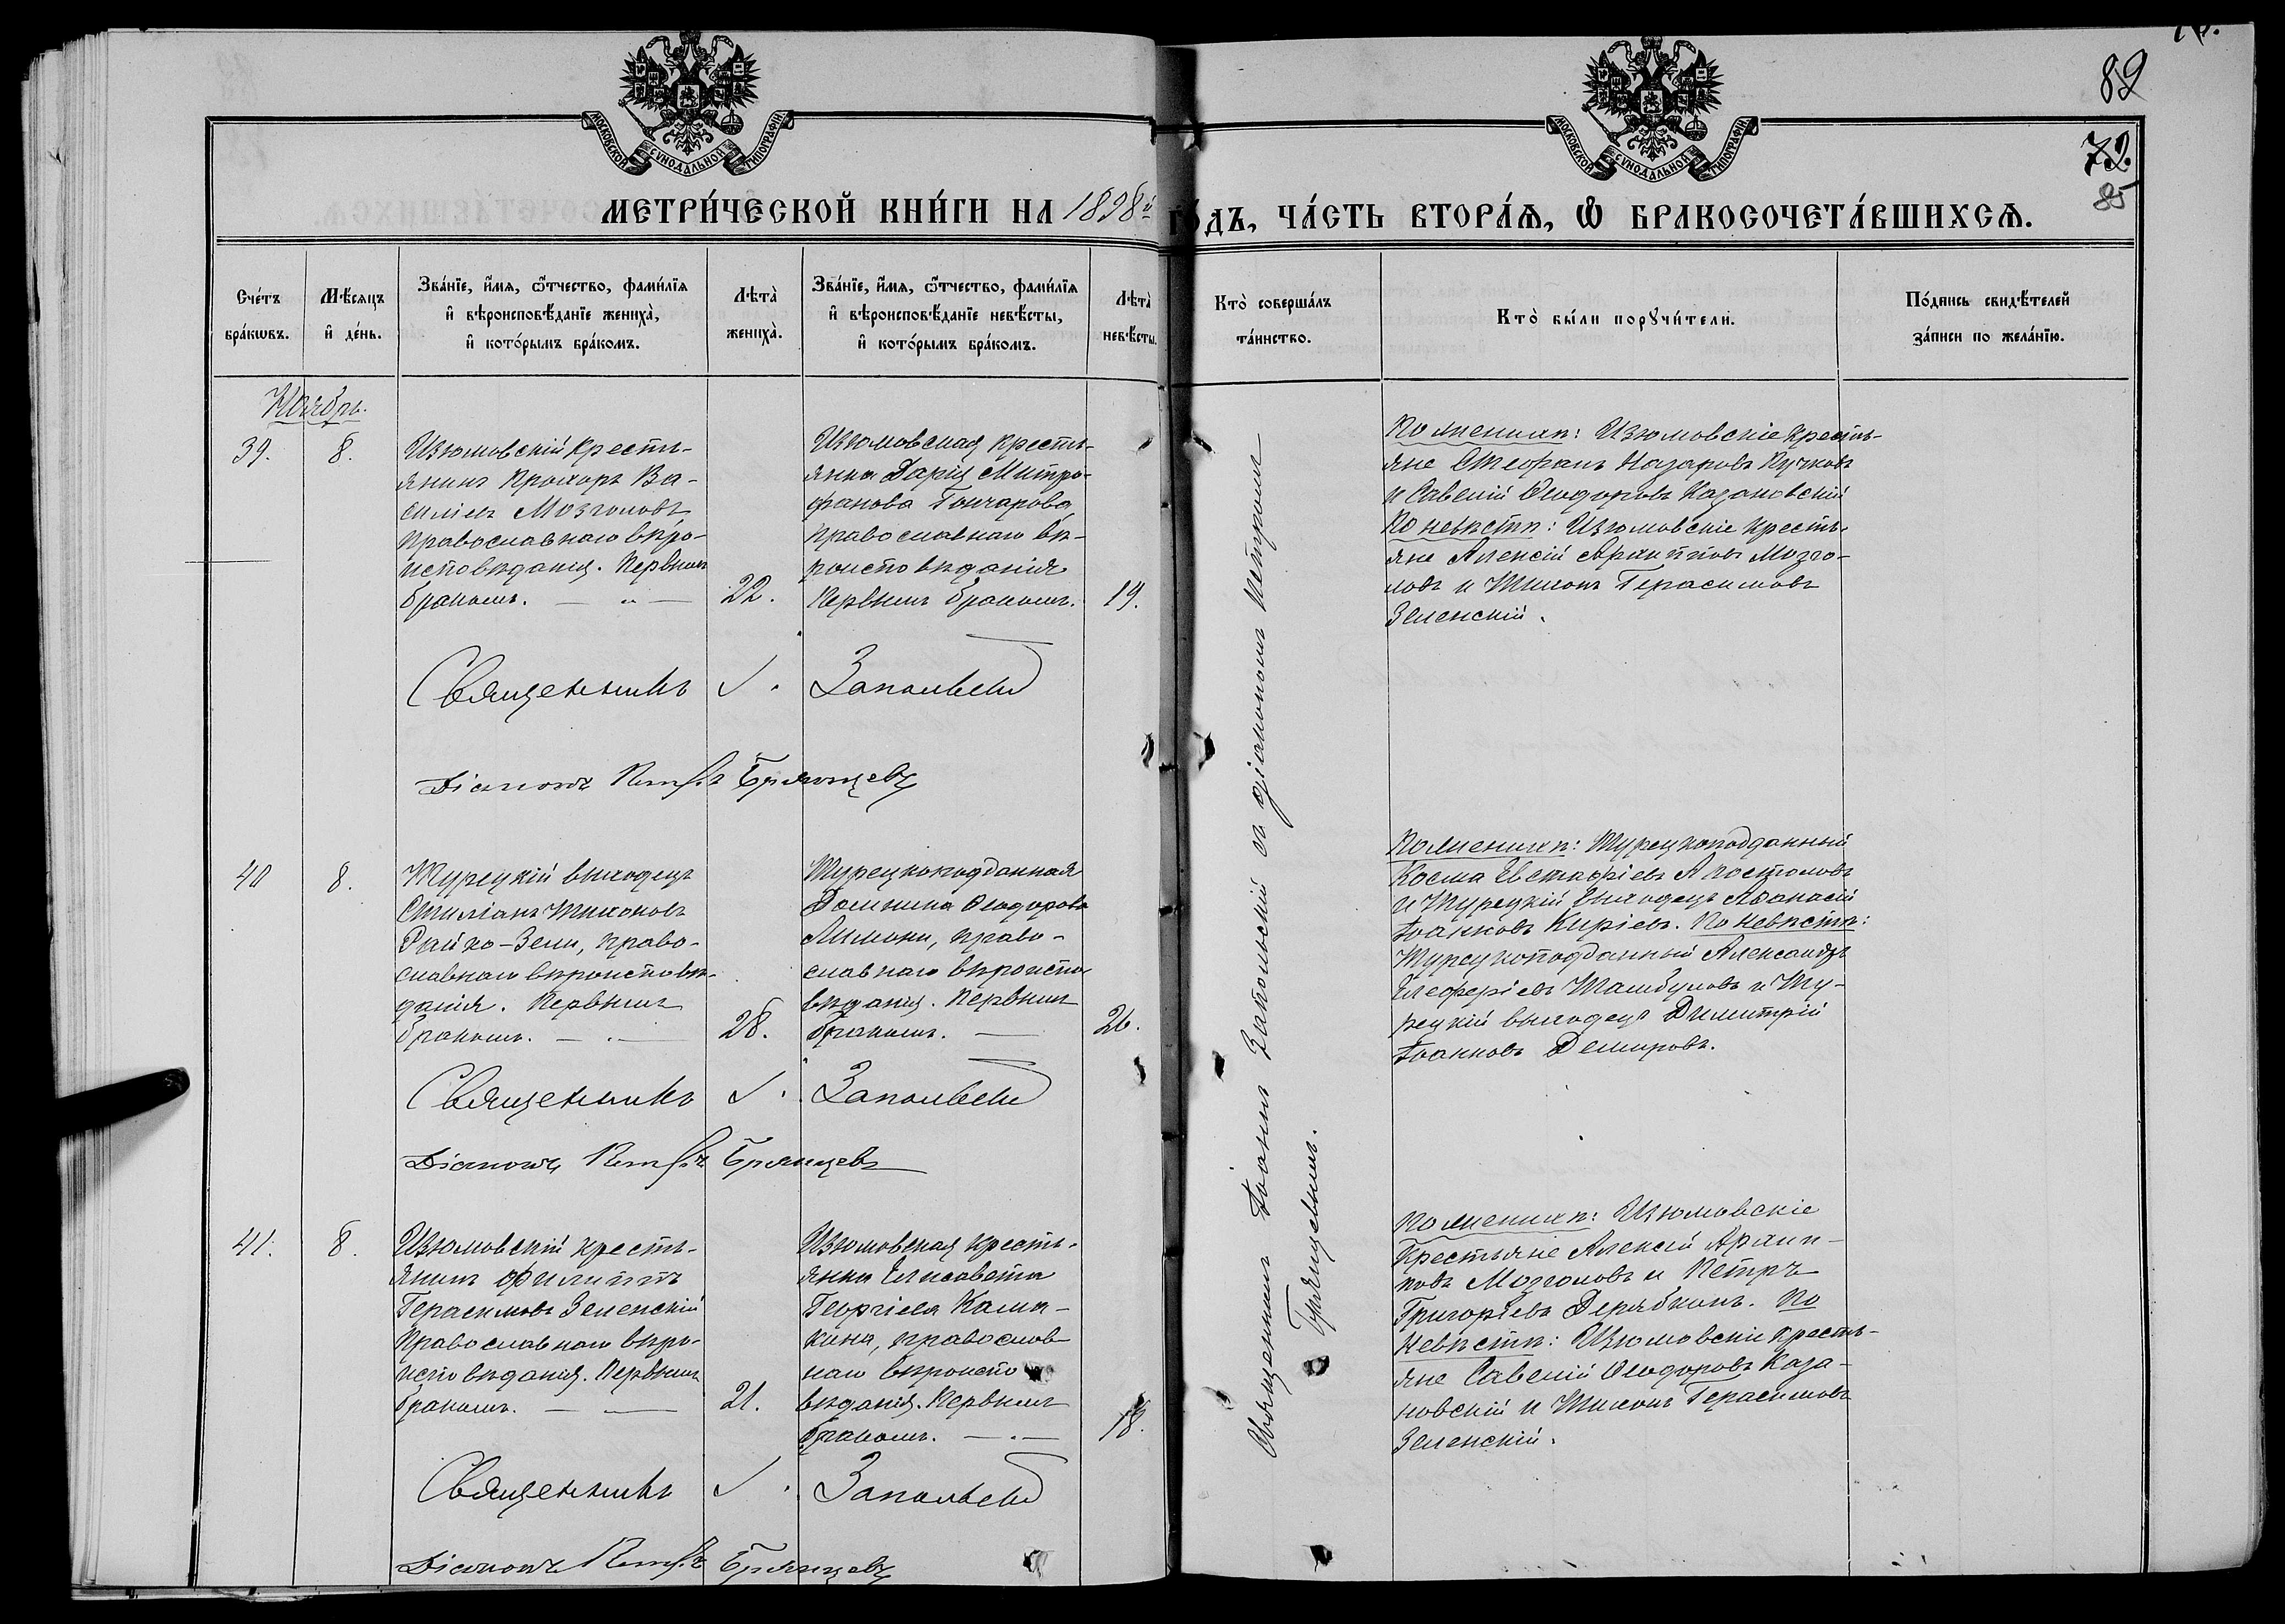 89
72.
85
МОСКОВСКОЙ СѴНОДАЛЬНОЙ ТИПОГРАФІИ
МОСКОВСКОЙ СѴНОДАЛЬНОЙ ТИПОГРАФІИ
МЕТРИ́ЧЕСКОЙ КНИ́ГИ НА 1898й ГО́ДЪ, ЧА́СТЬ ВТОРА́Ѧ, Ѿ БРАКОСОЧЕТА́ВШИХСѦ.
Сче́тъ бра́кѡвъ.
Мѣ́сяцъ и̑ де́нь.
Зва́нїе, и̑́мѧ, ѻ̑́тчество, фами́лїѧ и̑ вѣроисповѣ́данїе жениха̀, и̑ кото́рымъ бра́комъ.
Лѣта̀ жениха̀.
Зва́нїе, и̑́мѧ, ѻ̑́тчество, фами́лїѧ и̑ вѣроисповѣ́данїе невѣ́сты, и̑ кото́рымъ бра́комъ.
Лѣта̀ невѣ́сты.
Кто̀ соверша́лъ та́инство.
Кто̀ бы́ли порꙋчи́тели.
По́дпись свидѣ́телей за́писи по жела́нїю.
Ноябрь.
39.
8.
Изюмовскій кресть-
янинъ Прохоръ Ва-
силіевъ Мозголовъ
православнаго вѣро-
исповѣданія. Первымъ
бракомъ.
22.
Изюмовская кресть-
янка Дарія Митро-
фанова Гончарова
православнаго вѣ-
роисповѣданія
Первымъ бракомъ.
19.
По женихѣ: Изюмовскіе кресть-
яне Стефанъ Назаровъ Пучковъ
и Савелій Ѳеодоровъ Казановскій
По невѣстѣ: Изюмовскіе кресть-
яне Алексій Архиповъ Мозго-
ловъ и Тихонъ Герасимовъ
Зеленскій.
Священникъ І. Запольскій
Діаконъ Петръ Брянцевъ
Священникъ Іоаннъ Запольскій съ діакономъ Петромъ
Брянцевымъ.
40
8.
Турецкій выходецъ
Стиліанъ Тихоновъ
Райхо-Зели, право-
славнаго вѣроисповѣ-
данія. Первымъ
бракомъ.
28.
Турецкоподданная
Домника Ѳеодорова
Лимони, право-
славнаго вѣроиспо-
вѣданія. Первымъ
бракомъ.
26.
По женихѣ: Турецкоподданный
Косма Евстафіевъ Апостоловъ
и Турецкій выходецъ Аѳанасій
Іоанновъ Киріевъ. По невѣстѣ:
Турецкоподданный Александръ
Елеферіевъ Тамбуловъ и Ту-
рецкій выходецъ Димитрій
Іоанновъ Демировъ.
Священникъ І. Запольскій
Діаконъ Петръ Брянцевъ
41.
8.
Изюмовскій кресть-
янинъ Филиппъ
Герасимовъ Зеленскій
православнаго вѣро-
исповѣданія. Первымъ
бракомъ.
21.
Изюмовская кресть-
янка Елисавета
Георгіева
православ-
наго вѣроиспо
вѣданія. Первымъ
бракомъ.
18.
По женихѣ: Изюмовскіе
крестьяне Алексій Архип-
повъ Мозголовъ и Петръ
Григоріевъ Дерябкинъ. По
невѣстѣ: Изюмовскіе кресть-
яне Савелій Ѳеодоровъ Каза-
новскій и Тихонъ Герасимовъ
Зеленскій.
Священникъ І. Запольскій
Діаконъ Петръ Брянцевъ